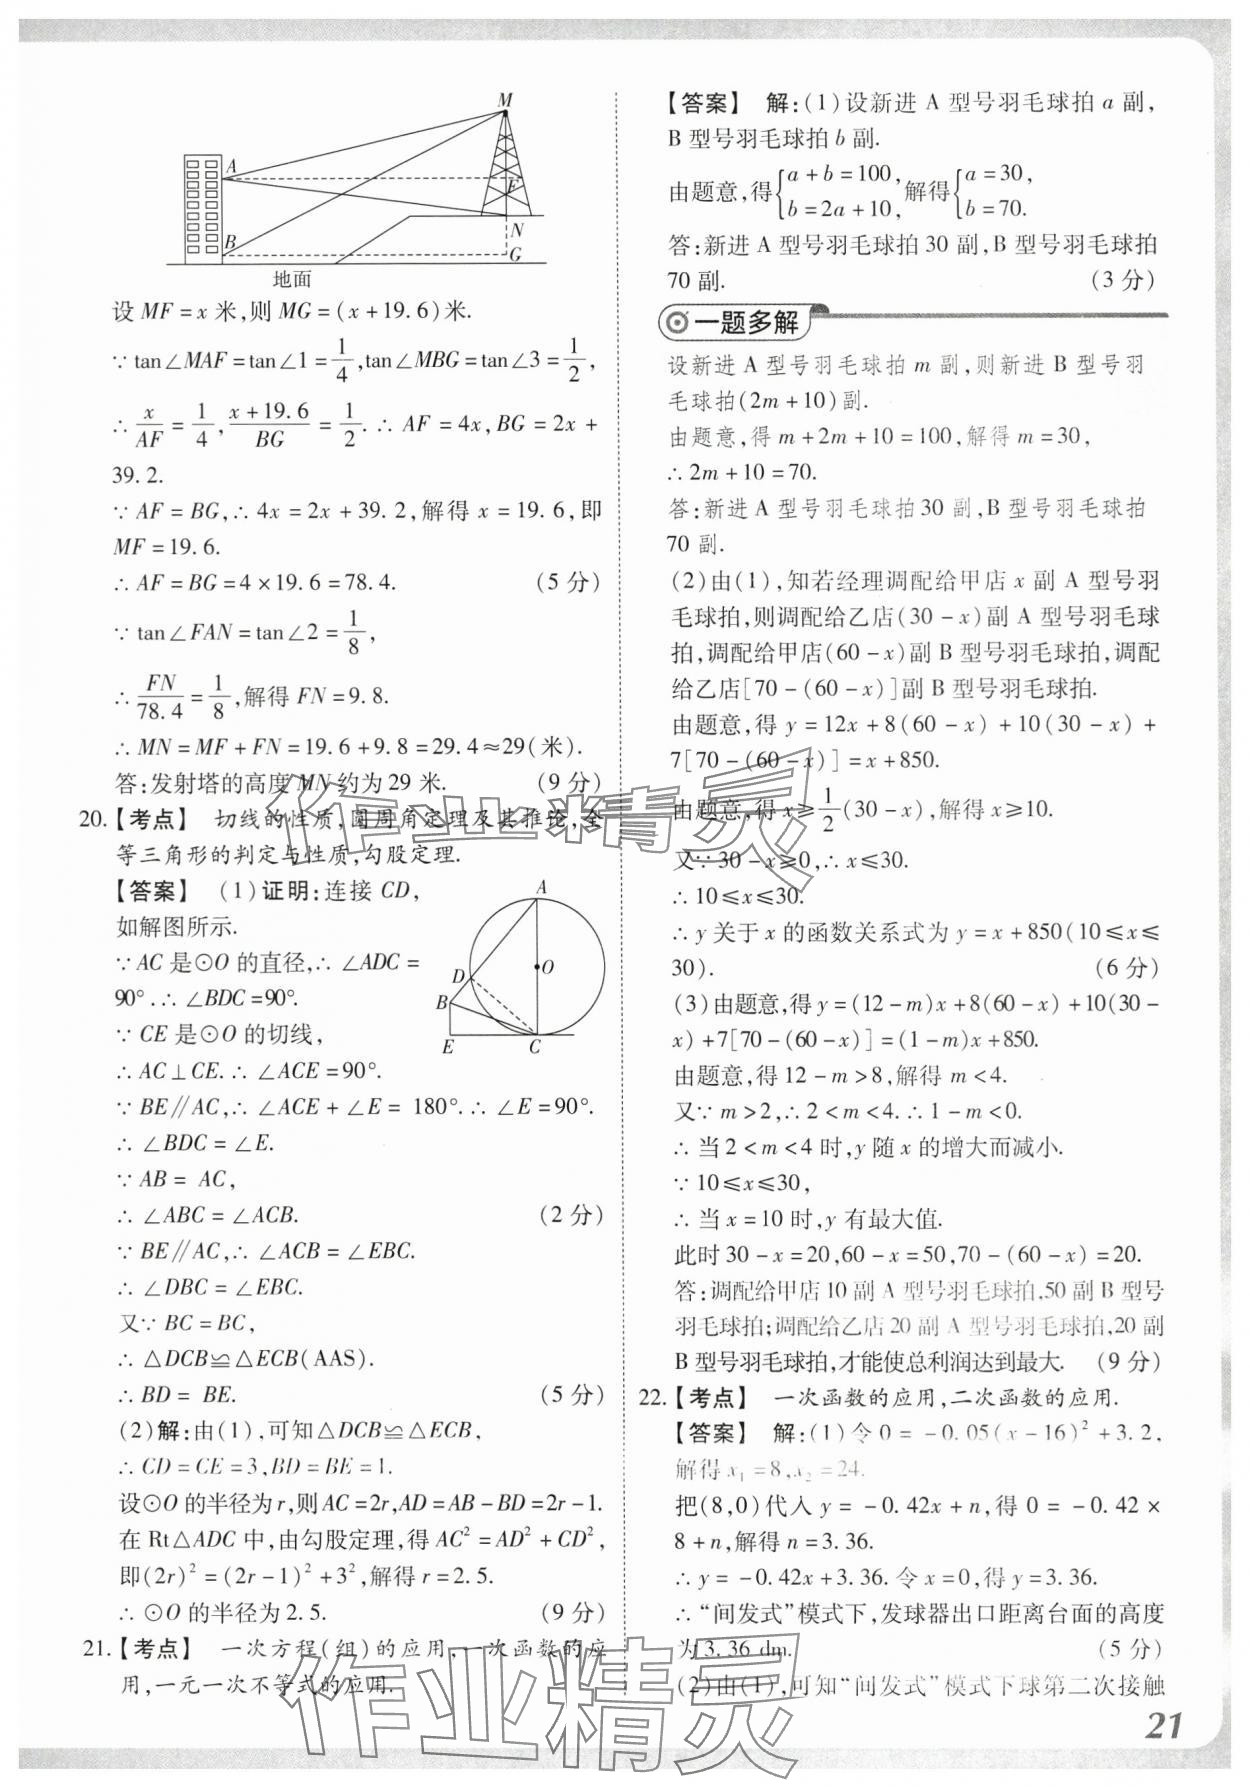 M
A
F
B
N
G
地面
设 MF=x 米,则 MG=(x+19.6)米.
∵ tan∠MAF=tan∠1=1/4,tan∠MBG=tan∠3=1/2,
∴ x/AF=1/4,(x+19.6)/BG=1/2.∴ AF=4x,BG=2x+
39.2.
∵ AF=BG,∴ 4x=2x+39.2,解得 x=19.6,即
MF=19.6.
∴ AF=BG=4×19.6=78.4. (5 分)
∵ tan∠FAN=tan∠2=1/8,
∴ FN/78.4=1/8,解得 FN=9.8.
∴ MN=MF+FN=19.6+9.8=29.4≈29(米).
答:发射塔的高度 MN 约为 29 米. (9 分)
20.【考点】 切线的性质,圆周角定理及其推论,全
等三角形的判定与性质,勾股定理.
【答案】 (1)证明:连接 CD,
如解图所示.
∵ AC 是⊙O 的直径,∴ ∠ADC=
90°.∴ ∠BDC=90°.
∵ CE 是⊙O 的切线,
∴ AC⊥CE.∴ ∠ACE=90°.
A
D
O
B
E
C
∵ BE∥AC,∴ ∠ACE+∠E= 180°.∴ ∠E=90°.
∴ ∠BDC=∠E.
∵ AB= AC,
∴ ∠ABC=∠ACB. (2 分)
∵ BE∥AC,∴ ∠ACB=∠EBC.
∴ ∠DBC=∠EBC.
又∵ BC=BC,
∴ △DCB≌△ECB(AAS).
∴ BD= BE. (5 分)
(2)解:由(1),可知△DCB≌△ECB,
∴ CD=CE=3,BD=BE=1.
设⊙O 的半径为 r,则 AC=2r,AD=AB-BD=2r-1.
在 Rt△ADC 中,由勾股定理,得 AC²=AD²+CD²,
即(2r)²=(2r-1)²+3²,解得 r=2.5.
∴ ⊙O 的半径为 2.5. (9 分)
21.【考点】 一次方程(组)的应用,一次函数的应
用,一元一次不等式的应用.
【答案】 解:(1)设新进 A 型号羽毛球拍 a 副,
B 型号羽毛球拍 b 副.
由题意,得{a+b=100, b=2a+10,解得{a=30, b=70.
答:新进 A 型号羽毛球拍 30 副,B 型号羽毛球拍
70 副. (3 分)
一题多解
设新进 A 型号羽毛球拍 m 副,则新进 B 型号羽
毛球拍(2m+10)副.
由题意,得 m+2m+10=100,解得 m=30,
∴ 2m+10=70.
答:新进 A 型号羽毛球拍 30 副,B 型号羽毛球拍
70 副.
(2)由(1),知若经理调配给甲店 x 副 A 型号羽
毛球拍,则调配给乙店(30-x)副 A 型号羽毛球
拍,调配给甲店(60-x)副 B 型号羽毛球拍,调配
给乙店[70-(60-x)]副 B 型号羽毛球拍.
由题意,得 y=12x+8(60-x)+10(30-x)+
7[70-(60-x)]=x+850.
由题意,得 x≥1/2(30-x),解得 x≥10.
又∵ 30-x≥0,∴ x≤30.
∴ 10≤x≤30.
∴ y 关于 x 的函数关系式为 y=x+850(10≤x≤
30). (6 分)
(3)由题意,得 y=(12-m)x+8(60-x)+10(30-
x)+7[70-(60-x)]=(1-m)x+850.
由题意,得 12-m>8,解得 m<4.
又∵ m>2,∴ 2<m<4.∴ 1-m<0.
∴ 当 2<m<4 时,y 随 x 的增大而减小.
∵ 10≤x≤30,
∴ 当 x=10 时,y 有最大值.
此时 30-x=20,60-x=50,70-(60-x)=20.
答:调配给甲店 10 副 A 型号羽毛球拍,50 副 B 型号
羽毛球拍;调配给乙店 20 副 A 型号羽毛球拍,20 副
B 型号羽毛球拍,才能使总利润达到最大. (9 分)
22.【考点】 一次函数的应用,二次函数的应用.
【答案】 解:(1)令 0=-0.05(x-16)²+3.2,
解得 x₁=8,x₂=24.
把(8,0)代入 y=-0.42x+n,得 0=-0.42×
8+n,解得 n=3.36.
∴ y=-0.42x+3.36.令 x=0,得 y=3.36.
∴ “间发式”模式下,发球器出口距离台面的高度
为 3.36 dm. (5 分)
(2)由(1),可知“间发式”模式下球第二次接触
21
作业精灵
作业精灵